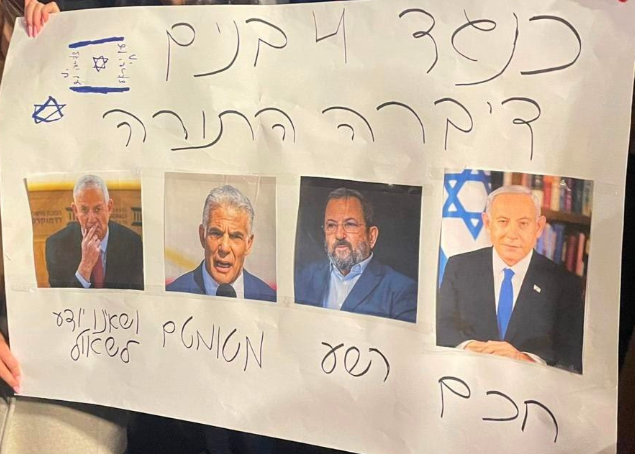 כנגד 4 בנים
דיברה התורה
עם ישראל
חי
חכם
רשע
מטומטם
ושאינו יודע
לשאול